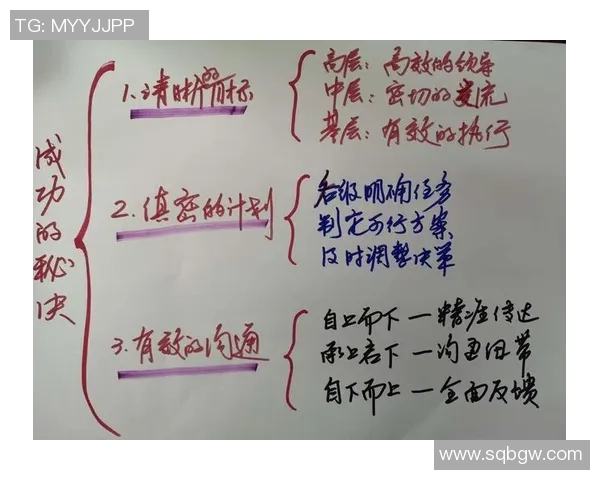 TG: MYYJJPP
成功的秘决
1.清晰的目标
高层：高效的领导
中层：密切的交流
基层：有效的执行
2.缜密的计划
各级明确任务
判定可行方案
及时调整决策
3.有效的沟通
自上而下一精准传达
承上启下一沟通纽带
自下而上一全面反馈
www.sqbgw.com